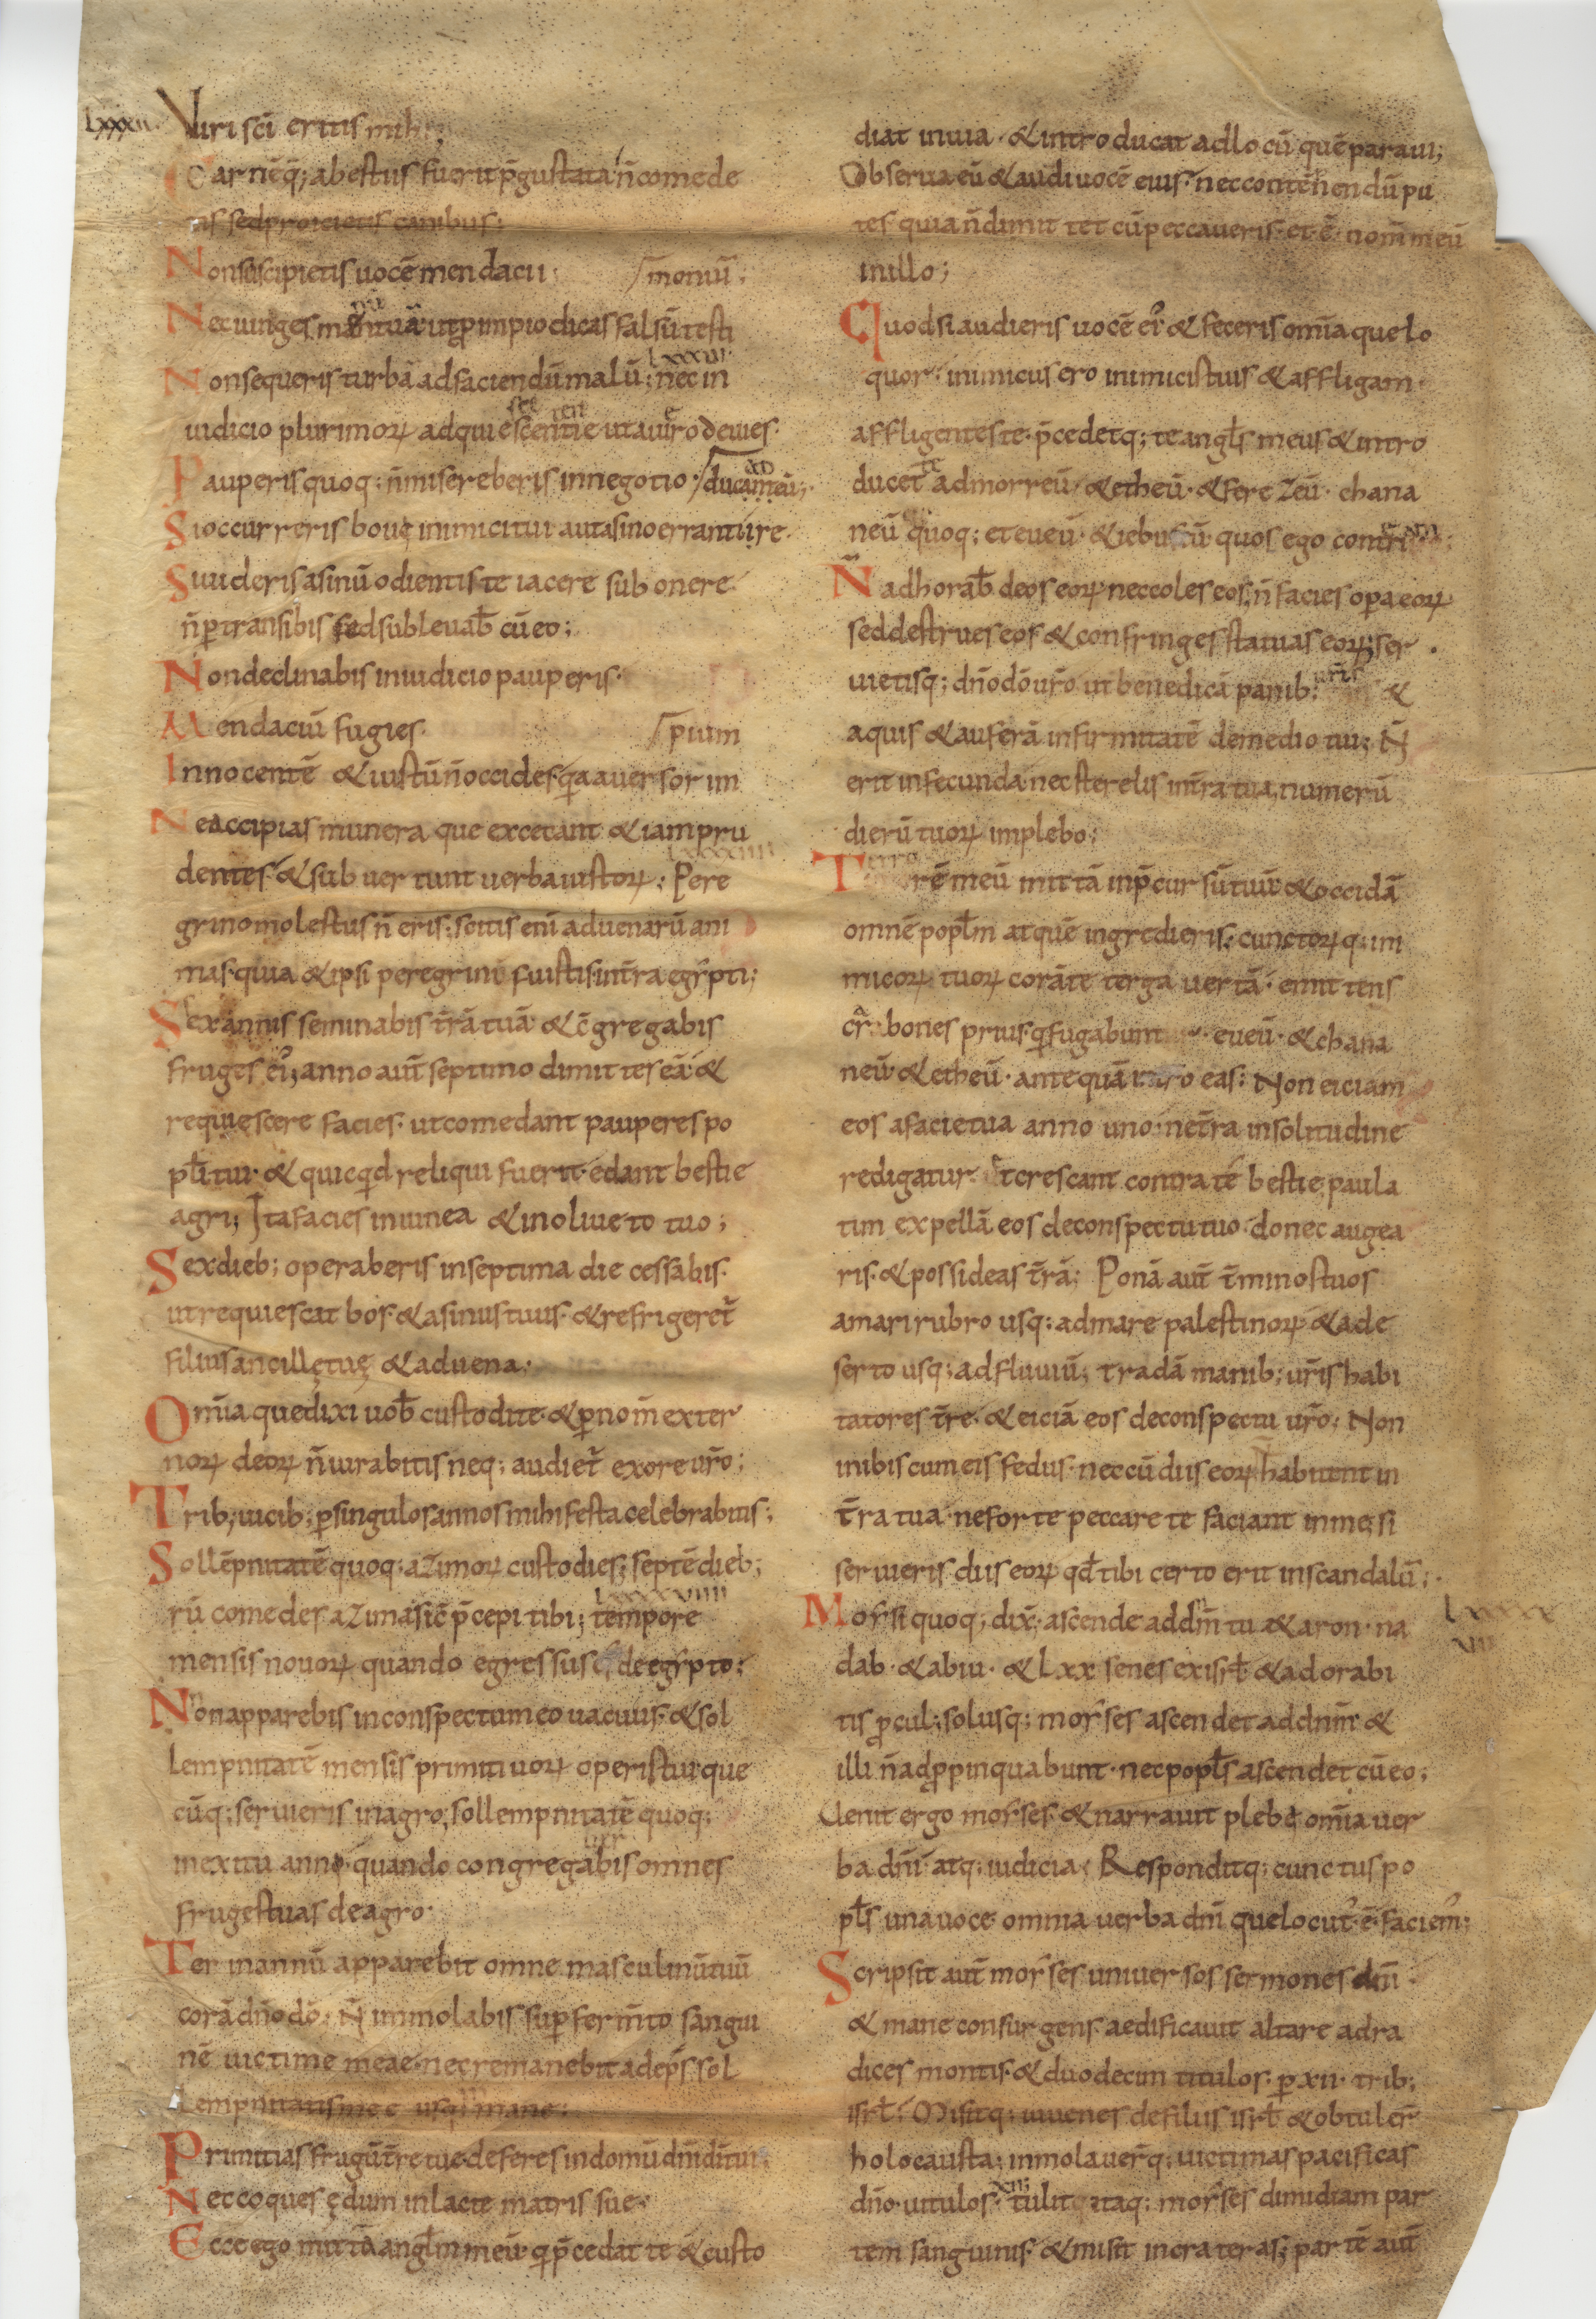 lxxxii. Viri sci eritis mihi
Carnēq; abestiis fuerit p̄gustata n̄ comede
tis sed proicietis canibus;
Non suscipietis uocē mendacii; /moniū;
Nec iunges manū tuā ut pro impio dicas falsū testi
lxxxiii
Non sequeris turbā ad faciendū malū; nec in
iudicio plurimoꝝ adquiesces sententie ut a uero deuies.
Pauperis quoq; n̄ misereberis in negotio. /duc ad eū;
Si occurreris boui inimici tui aut asino erranti re
Si uideris asinū odientis te iacere sub onere
n̄ ptransibis sed subleuab̄ cū eo;
Non declinabis in iudicio pauperis.
Mendaciū fugies. /pium
Innocentē & iustū n̄ occides. qa auersor im
Ne accipias munera que excecant & iam pru
lxxxiiii
dentes & sub uertunt uerba iustoꝝ; Pere
grino molestus n̄ eris; scitis eni aduenarū ani
mas. quia & ipsi peregrini fuistis in t̄ra egẏpti;
Sex annis seminabis t̄rā tuā & c̄gregabis
fruges ei'; anno aut̄ septimo dimittes eā & 
requiescere facies. ut comedant pauperes po
pl̄i tui. & quicqd reliqui fuerit. edant bestie
agri; Ita facies in uinea & in oliueto tuo;
Sex dieb; operaberis in septima die cessabis.
ut requiescat bos. & asinus tuus. & refrigeret̄
filius ancillę tuę & aduena.
Om̄ia que dixi uob̄ custodite. & p nom̄ exter
noꝝ deoꝝ n̄ iurabitis neq; audiet̄ ex ore ur̄o;
Trib; uicib; p singulos annos mihi festa celebrabitis;
Sollēpnitatē quoq; azimoꝝ custodies; septē dieb;
lxxxviiii
rū comedes azima sic̄ p̄cepi tibi; tempore
mensis nouoꝝ quando egressus es de egẏpto;
Non apparebis in conspectu meo uacuus. & sol
lempnitatē mensis primitiuoꝝ operis tui. que
cūq; serueris in agro; sollempnitatē quoq;
in exitu anni. quando congregabis omnes
fruges tuas de agro.
Ter in annū apparebit omne masculinū tuū
corā dn̄o dō. N̄ immolabis sup ferm̄to sangui
nē uictime meae. nec remanebit adeps sol
lempnitatis mee usq; mane;
Primitias frugū t̄re tue. deferes in domū dn̄i dī tui;
Nec coques ędum in lacte matris sue.
Ecce ego mittā angl̄m meū. q p̄cedat te & custo
diat in uia. & introducat ad locū quē paraui;
Obserua eū & audi uocē eius. nec contēnendū pu
tes. quia n̄ dimittet cū peccaueris. et ē nom̄ meū
in illo;
Quod si audieris uocē ei' & feceris om̄ia que lo
quor. inimicus ero inimicis tuis & affligam
affligentes te. p̄cedetq; te angl̄s meus & intro
ducet te ad morreū. & etheū. & ferezeū. chana
neū quoq; et eueū. & iebuseū quos ego
N̄ adhorab̄ deos eoꝝ nec coles eos; n̄ facies opa eoꝝ
sed destrues eos & confringes statuas eoꝝ; ser
uietisq; dn̄o dō ur̄o ut benedicā panib; ur̄is &
aquis & auferā infirmitatē de medio tui; N̄
erit infecunda nec sterelis in t̄ra tua, numerū
dierū tuoꝝ implebo;
Terrorē meū mittā in p̄cursū tuū & occidā
omnē popl̄m at quē ingredieris; cunctoꝝq; ini
micoꝝ tuoꝝ corā te terga uertā. emittens
crabones prius. q fugabunt eueū. & chana
neū & etheū. antequā intro eas; Non eiciam
eos a facie tua anno uno. ne t̄ra in solitudinē
redigatur. & crescant contra te bestie. paula
tim expellā eos de conspectu tuo. donec augea
ris. & possideas t̄rā; Ponā aut̄ t̄minos tuos
a mari rubro usq; ad mare palestinoꝝ & a de
serto usq; ad fluuiū; tradā manib; ur̄is habi
tatores t̄re. & eiciā eos de conspectu ur̄o; Non
inibis cum eis fedus. nec cū diis eoꝝ habitent in
t̄ra tua. ne forte peccare te faciant in me; si
seruieris diis eoꝝ qd̄ tibi certo erit in scandalū;
Moẏsi quoq; dix̄. ascende ad dn̄m tu & aron. na lxxxx vii
dab. & abiu. & lxx senes ex isrl̄ & adorabi
tis pcul; solusq; moẏses ascendet ad dnm̄ &
illi n̄ adppinquabunt. nec popl̄s ascendet cū eo;
Uenit ergo moẏses. & narrauit plebi om̄ia uer
ba dn̄i atq; iudicia; Responditq; cunctus po
pl̄s una uoce. omnia uerba dn̄i que locut' ē. faciem';
Scripsit aut̄ moẏses uniuersos sermones dn̄i.
& mane consurgens. aedificauit altare ad ra
dices montis. & duodecim titulos. p xii. trib;
isrl̄. Misitq; iuuenes de filiis isrl̄ & obtuler̄
holocausta; immolauer̄q; uictimas pacificas
dn̄o uitulos. xii tulit itaq; moẏses dimidiam par
tem sanguinis. & misit in crateras; partē aut̄